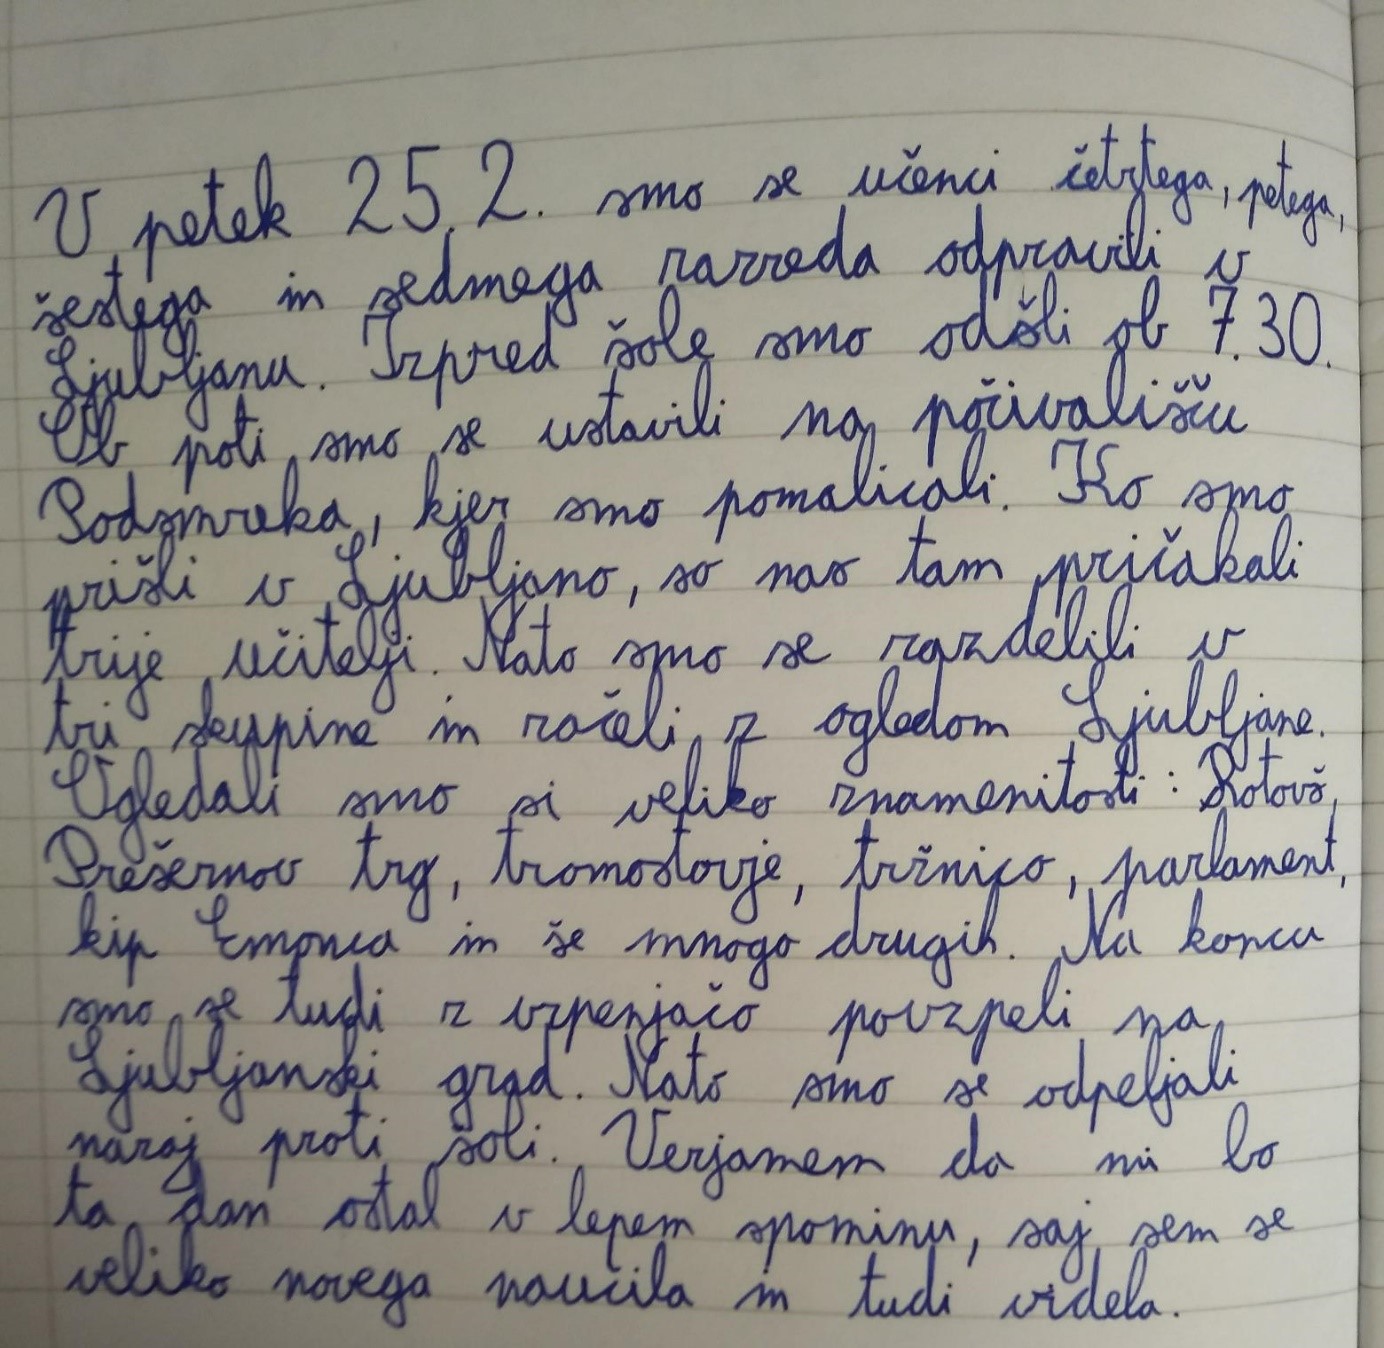 V petek 25.2. smo se učenci četrtega, petega,
šestega in sedmega razreda odpravili v
Ljubljanu. Izpred šole smo odšli ob 7.30.
Ob poti smo se ustavili na počivališču
Podsmreka, kjer smo pomalicali. Ko smo
prišli v Ljubljano, so nas tam pričakali
trije učitelji. Nato smo se razdelili v
tri skupine in začeli z ogledom Ljubljane.
Ogledali smo si veliko znamenitosti: Rotovš,
Prešernov trg, tromostovje, tržnico, parlament,
kip Emonca in še mnogo drugih. Na koncu
smo se tudi z vzpenjačo povzpeli na
Ljubljanski grad. Nato smo se odpeljali
nazaj proti šoli. Verjamem da mi bo
ta dan ostal v lepem spominu, saj sem se
veliko novega naučila in tudi videla.